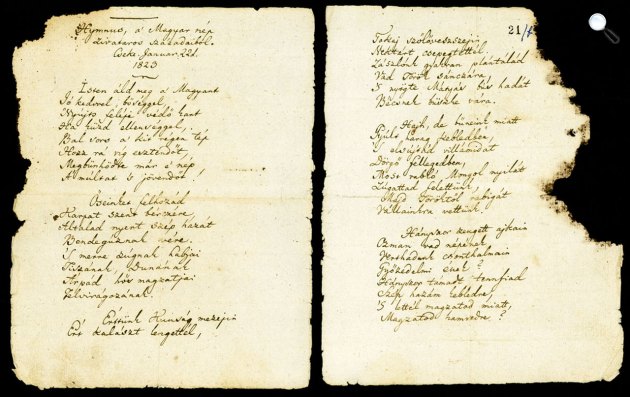 Hymnus, a Magyar nép
zivataros századaiból.
Cseke. Januar. 22d.
1823
Isten áldd meg a Magyart
Jó kedvvel, bőséggel,
Nyújts feléje védő kart
Ha küzd ellenséggel,
Bal sors a' kit régen tép
Hozz rá víg esztendőt,
Megbűnhődte már e' nép
A' múltat 's jövendőt!
Őseinket felhozád
Kárpát szent bérczére,
Általad nyert szép hazát
Bendegúznak vére.
'S merre zúgnak habjai
Tiszának, Dunának
Árpád hős magzatjai
Felvirágozának.
Értünk Kunság mezején
Ért kalászt lengettél,
21/1
Tokaj szőlővesszein
Nektárt csepegtettél.
Zászlónk gyakran plántálád
Vad Török sánczára,
'S nyögte Mátyás bús hadát
Bécsnek büszke vára.
Hajh, de bűneink miatt
Gyúlt harag kebledben,
's elsújtád villámidat
Dörgő fellegedben,
Most rabló Mongol nyilát
Zúgattad felettünk,
Majd Töröktől rabigát
Vállainkra vettünk.
Hányszor zengett ajkain
Ozman vad népének
Vert hadunk csonthalmain
Győzedelmi ének?
Hányszor támadt tennfiad
Szép hazám kebledre,
'S lettél magzatod miatt,
Magzatod hamvvedre?